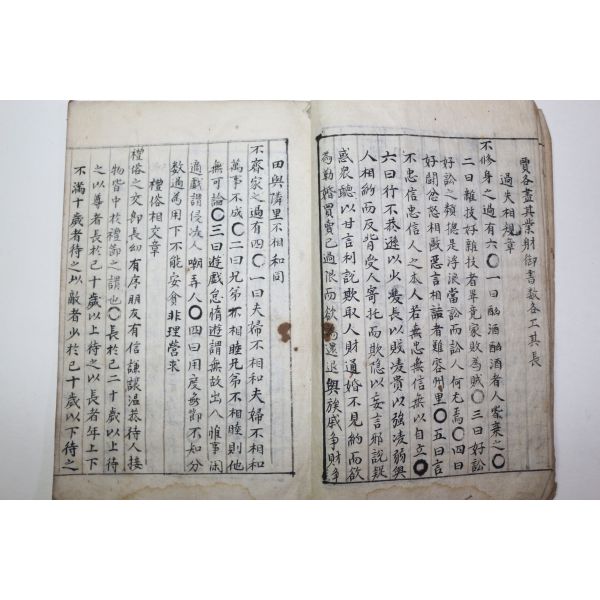 賈各盡其業射御書數各工其長
過失相規章
不修身之過有六〇一曰酗酒酗酒者人棄之〇
二曰雜技好雜技者畢竟家敗為賊〇三曰好訟
好訟之類揔是浮浪當訟而訟人何尤焉〇四曰
好鬪忿怒相敺惡言相詰者難容州里〇五曰言
不忠信忠信人之本人若無忠無信無以自立〇
六曰行不恭遜以少凌長以賤凌貴以強凌弱與
人相約而反背受人寄托而欺隱以妄言邪說疑
惑衆聽以甘言利說欺取人財通婚不見約而欲
為勤婚買賣已過限而欲還退與族戚爭財爭
田與隣里不相和同
不齊家之過有四〇一曰夫婦不相和夫婦不相和
萬事不成〇二曰兄弟不相睦兄弟不相睦則他
無可論〇三曰遊戲怠惰遊謂無故出入惟事閑
適戲謂侵凌人嘲弄人〇四曰用度無節不知分
數過為用下不能安貪非理營求
禮俗相交章
禮俗之交郷長幼有序朋友有信謙讓温恭待人接
物皆中於禮節之謂也〇長於己二十歲以上待
之以尊者長於己十歲以上待之以長者年上下
不滿十歲者待之以敵者少於己十歲以下待之